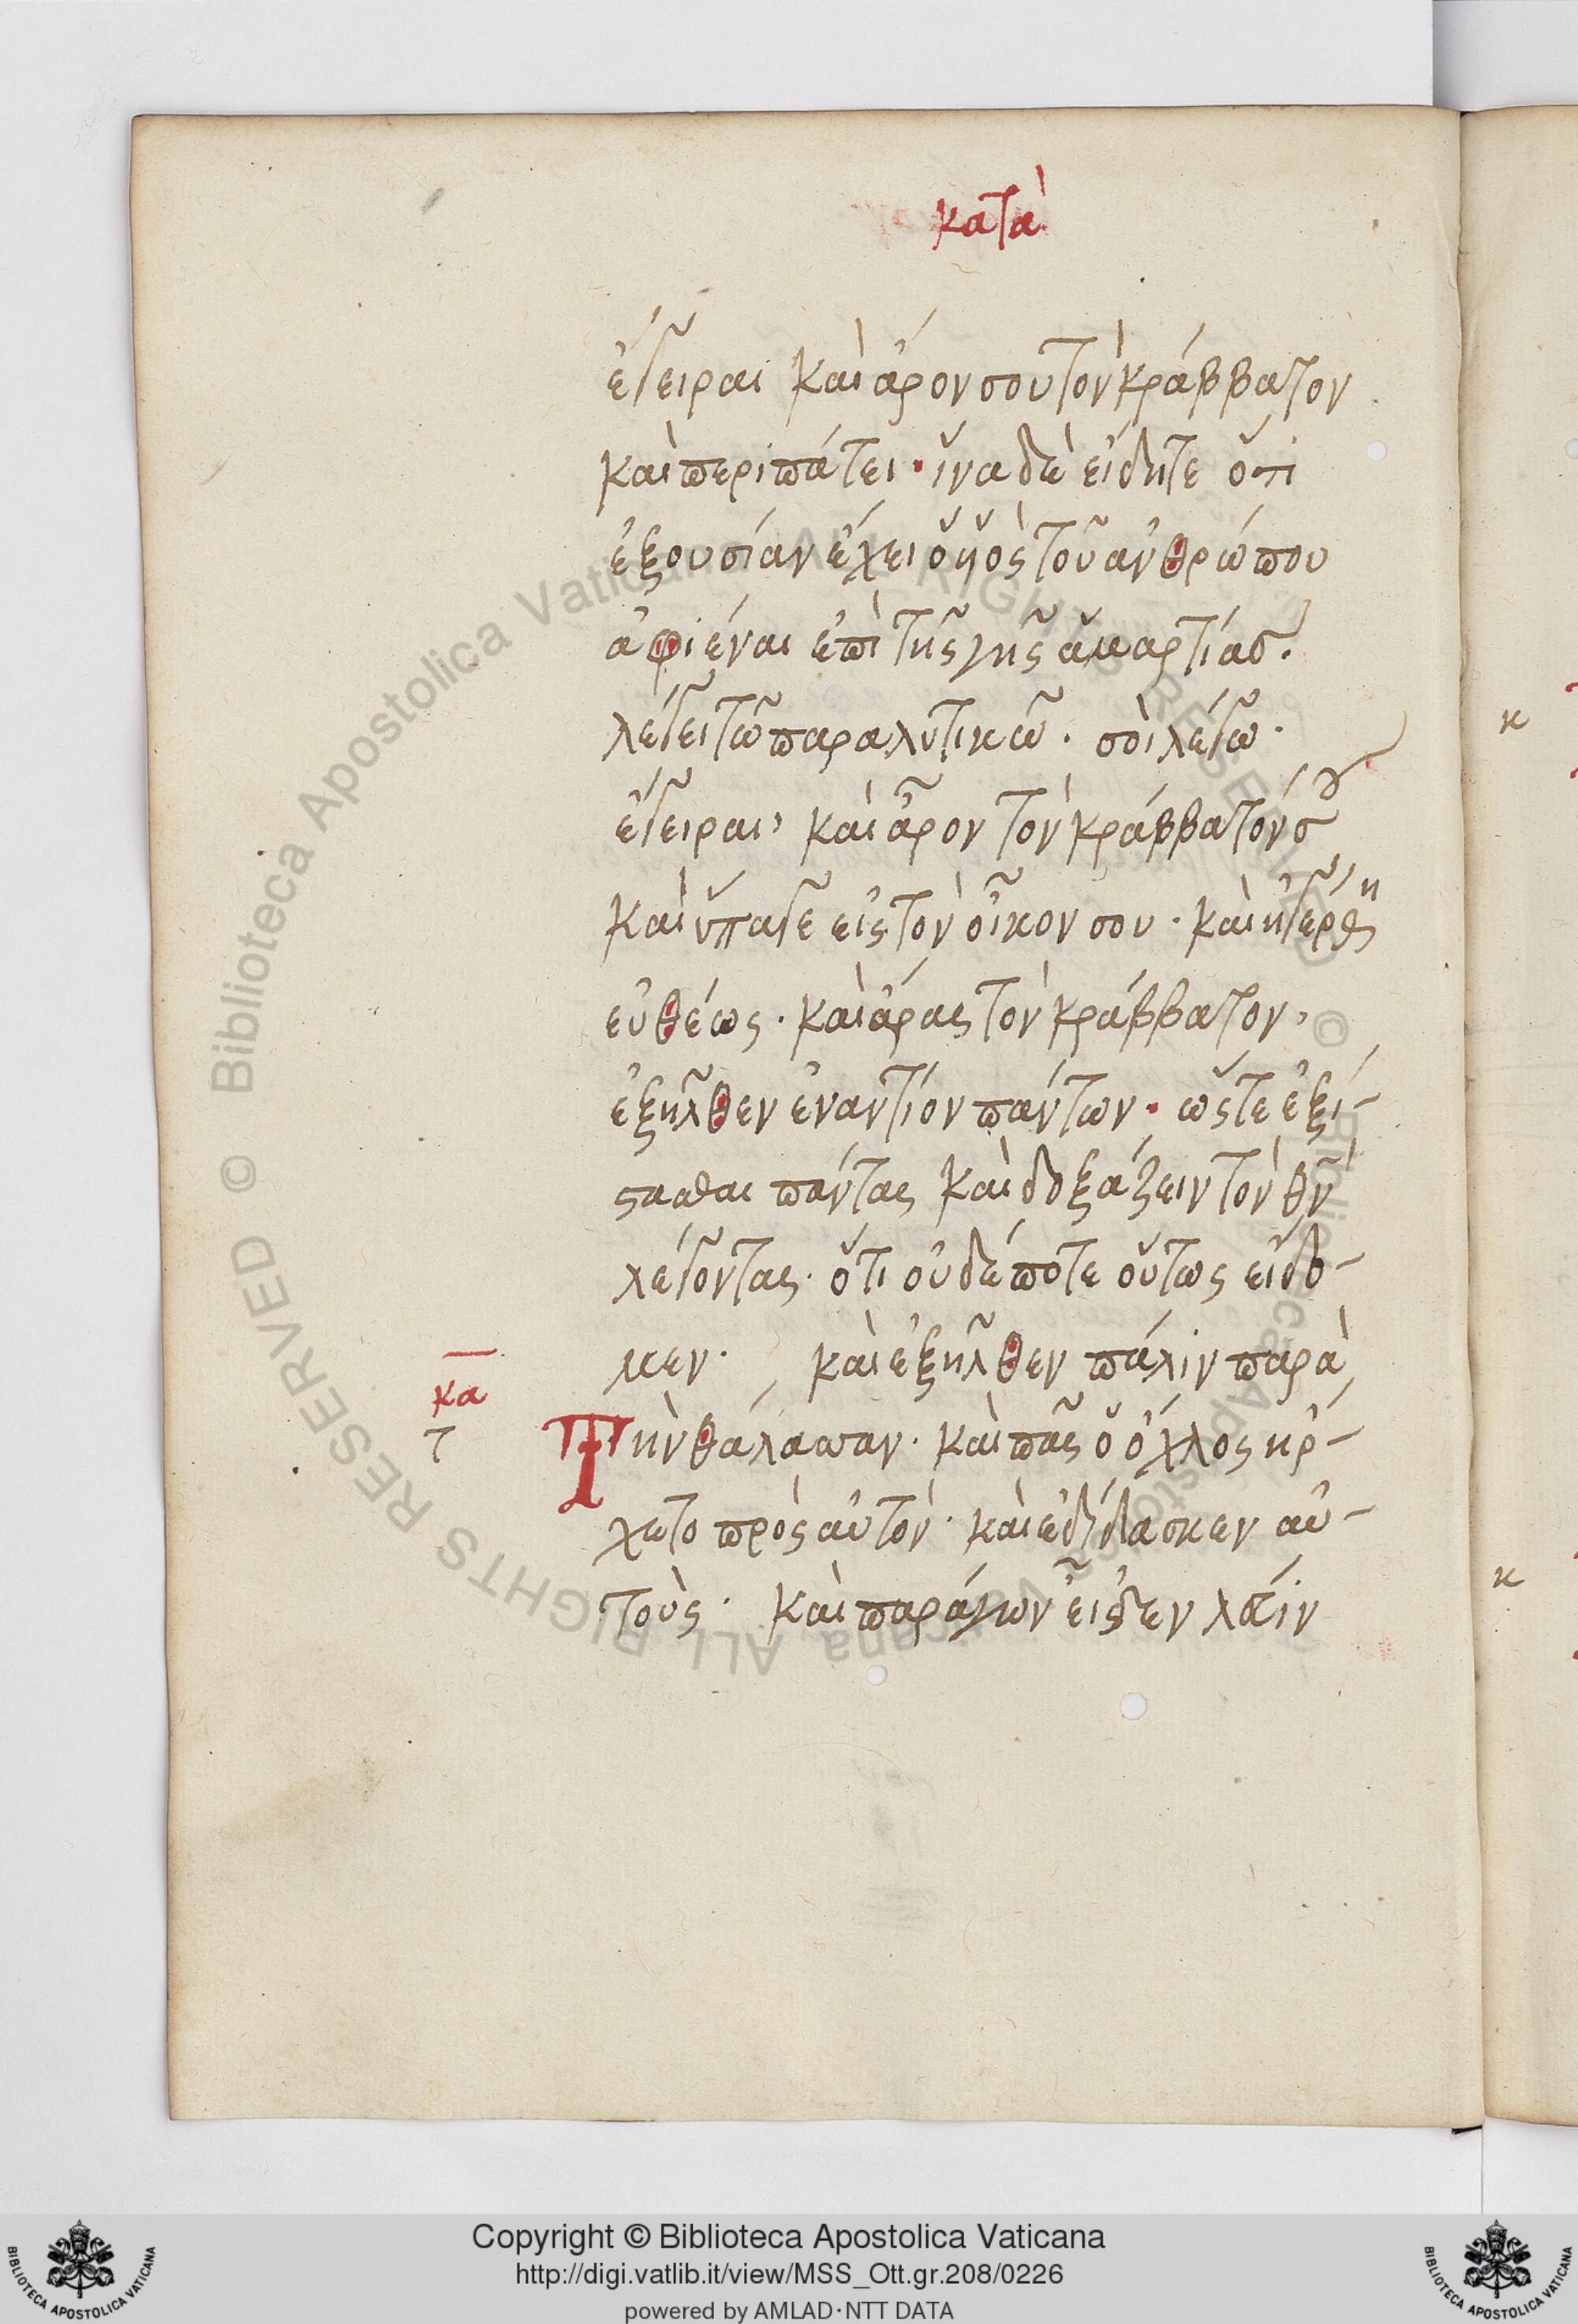 κατὰ
ἔγειραι καὶ ἄρον σου τὸν κράββατον
καὶ περιπάτει· ἵνα δὲ εἰδῆτε ὅτι
ἐξουσίαν ἔχει ὁ ὑἱὸς τοῦ ἀνθρώπου
ἀφιέναι ἐπὶ τῆς γῆς ἁμαρτίας.
λέγει τῶ παραλυτικῶ· σοὶ λέγω·
ἔγειραι, καὶ ἆρον τὸν κράββατόν σου
καὶ ὕπαγε εἰς τὸν οἶκον σου· καὶ ἠγέρθη
εὐθέως· καὶ ἄρας τὸν κράββατον,
ἐξῆλθεν ἐναντίον πάντων· ὥστε ἐξί-
στασθαι πάντας καὶ δοξάζειν τὸν θν
λέγοντας· ὅτι οὐδέποτε οὕτως εἴδο-
μεν· καὶ ἐξῆλθεν πάλιν παρὰ
κα
τ
Τὴν θάλασσαν· καὶ πᾶς ὁ ὄχλος ἤρ-
χετο πρὸς αὐτὸν· καὶ ἐδίδασκεν αὐ-
τοὺς· καὶ παράγων εἶδεν λευίν
κ
κ
© Biblioteca Apostolica Vaticana ALL RIGHTS RESERVED
© Biblioteca Apostolica Vaticana ALL RIGHTS RESERVED
Copyright © Biblioteca Apostolica Vaticana
http://digi.vatlib.it/view/MSS_Ott.gr.208/0226
powered by AMLAD·NTT DATA
BIBLIOTECA APOSTOLICA VATICANA
BIBLIOTECA APOSTOLICA VATICANA